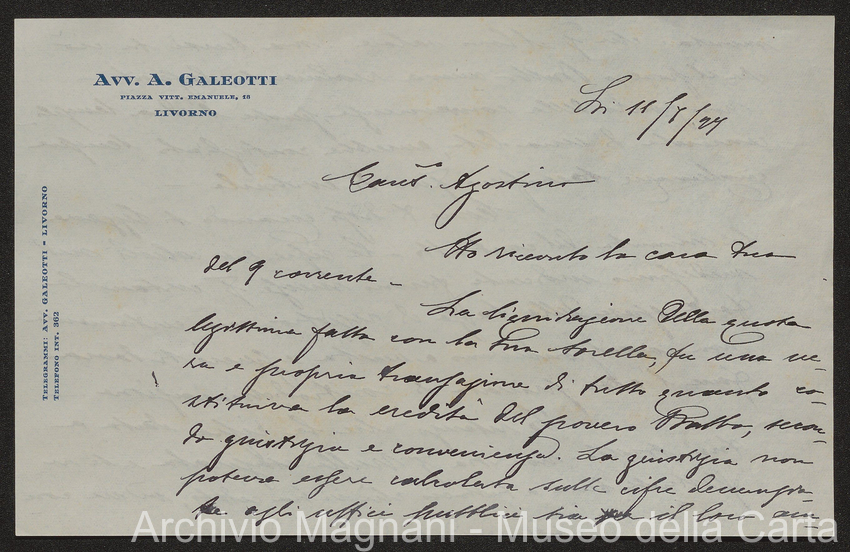 AVV. A. GALEOTTI
PIAZZA VITT. EMANUELE, 18
LIVORNO
TELEGRAMMI: AVV. GALEOTTI - LIVORNO
TELEFONO INT. 362
Li 11/7/27
Cariss. Agostino
Ho ricevuto la cara tua
del 9 corrente -
La liquidazione della quota
legittima fatta con la tua sorella, fu una ve-
ra e propria transazione di tutto quanto co-
stituiva la eredità del povero Babbo, secon-
do giustizia e convenienza. La giustizia non
poteva essere calcolata sulle cifre denunzia-
te agli uffici pubblici sia il loro am
Archivio Magnani - Museo della Carta